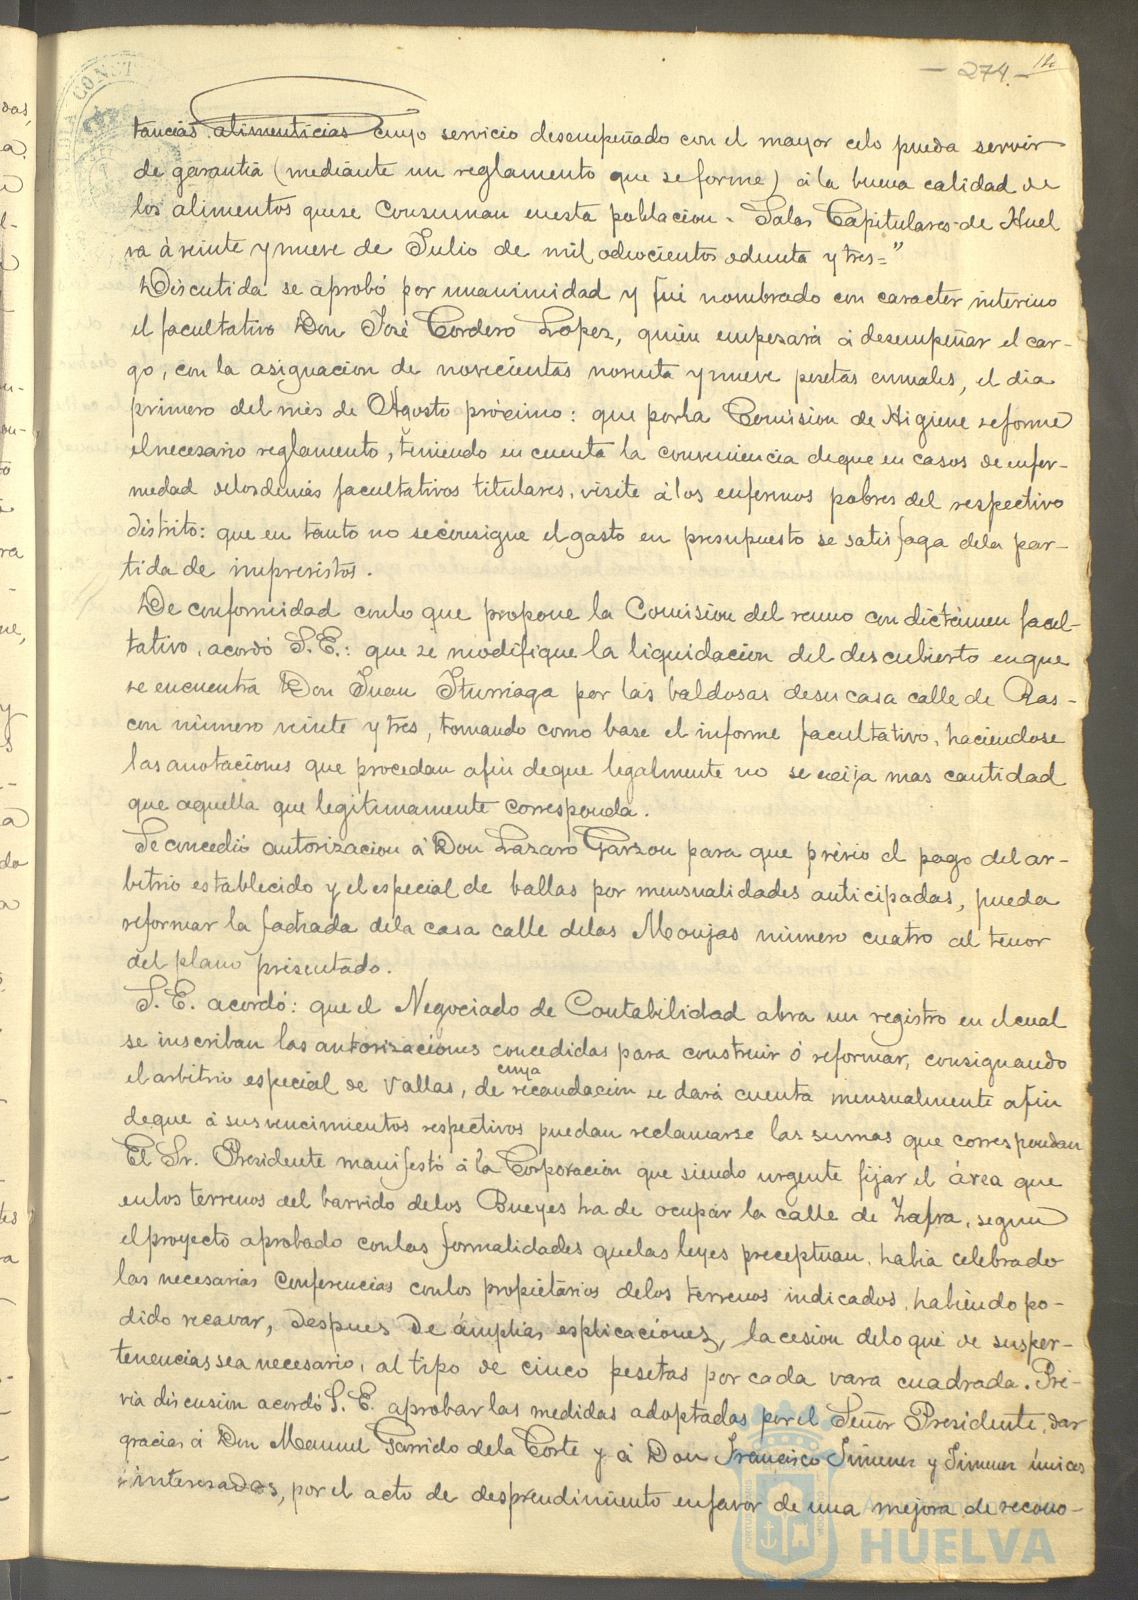 - 274. - 14
tancias alimenticias cuyo servicio desempeñado con el mayor celo pueda servir
de garantia (mediante un reglamento que se forme) á la buena calidad de
los alimentos que se consuman en esta poblacion - Salas Capitulares de Huel
va à veinte y nueve de Julio de mil ochocientos ochenta y tres="
Discutida se aprobó por unanimidad y fué nombrado con caracter interino
el facultativo Don José Cordero Lopez, quien empezará á desempeñar el car-
go, con la asignacion de novecientas noventa y nueve pesetas anuales, el dia
primero del mes de Agosto próximo: que por la Comision de Higiene se forme
el necesario reglamento, teniendo en cuenta la conveniencia de que en casos de enfer-
medad de los demás facultativos titulares, visite á los enfermos pobres del respectivo
distrito: que en tanto no se consigue el gasto en presupuesto se satisfaga de la par-
tida de imprevistos.
De conformidad con lo que propone la Comision del ramo con dictámen facul-
tativo, acordó S.E.: que se modifique la liquidacion del descubierto en que
se encuentra Don Juan Iturriaga por las baldosas de su casa calle de Ras-
con número veinte y tres, tomando como base el informe facultativo, haciendose
las anotaciones que procedan afin de que legalmente no se exija mas cantidad
que aquella que legitimamente corresponda.
Se concedió autorizacion á Don Lazaro Garzon para que prévio el pago del ar-
bitrio establecido y el especial de ballas por mensualidades anticipadas, pueda
reformar la fachada de la casa calle de las Monjas número cuatro al tenor
del plano presentado.
S. E. acordó: que el Negociado de Contabilidad abra un registro en el cual
se inscriban las autorizaciones concedidas para construir ó reformar, consignando
el arbitrio especial de vallas, de cuya recaudacion se dará cuenta mensualmente afin
de que á sus vencimientos respectivos puedan reclamarse las sumas que correspondan
El Sr. Presidente manifestó á la Corporacion que siendo urgente fijar el área que
en los terrenos del barrido de los Bueyes ha de ocupar la calle de Zafra, segun
el proyecto aprobado con las formalidades que las leyes preceptuan, habia celebrado
las necesarias conferencias con los propietarios de los terrenos indicados, habiendo po-
dido recavar, despues de ámplias esplicaciones, la cesion de lo que de sus per-
tenencias sea necesario, al tipo de cinco pesetas por cada vara cuadrada. Pré-
via discusion acordó S. E. aprobar las medidas adoptadas por el Señor Presidente, dar
gracias á Don Manuel Garrido de la Corte y á Don Francisco Jimenez y Jimenez únicos
interesados, por el acto de desprendimiento en favor de una mejora de recono-
HUELVA